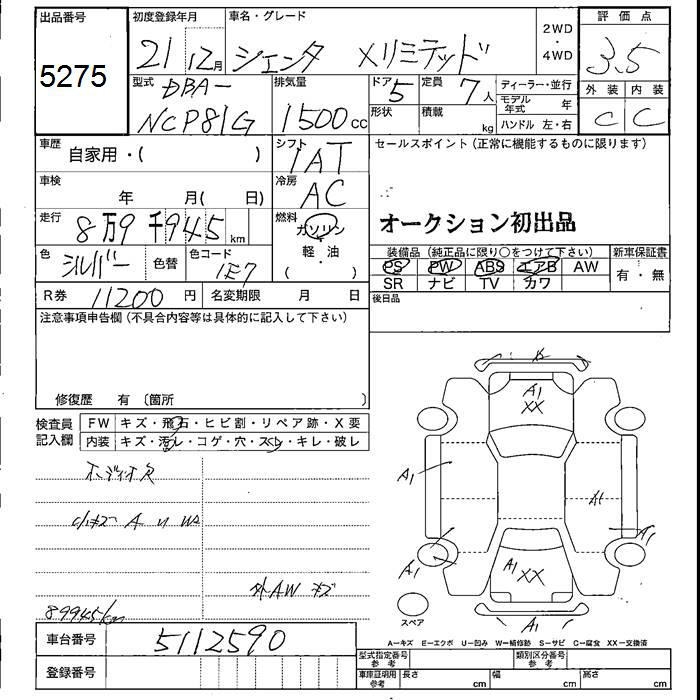 出品番号 初度登録年月 車名・グレード 2WD ・ 4WD 評価点
5275 21 12月 シエンタ Xリミテッド 3.5
型式 DBA- 排気量 ドア 5 定員 7人 ディーラー・並行 外装 内装
NCP81G 1500cc 形状 積載 kg モデル年式 年 C C
ハンドル 左・右
車歴 自家用・( ) シフト IAT セールスポイント(正常に機能するものに限ります)
車検 年 月( 日) 冷房 AC
走行 8万9千945km 燃料 ガソリン 軽・油 ( ) オークション初出品
色 シルバー 色替 色コード 1E7 装備品(純正品に限り○をつけて下さい) 新車保証書
PS PW ABS エアB AW 有・無
SR ナビ TV カワ
R券 11200円 名変期限 月 日 後日品
注意事項申告欄(不具合内容等は具体的に記入して下さい)
修復歴 有 〔箇所 〕
検査員記入欄 FW キズ・飛石・ヒビ割・リペア跡・X要
内装 キズ・汚レ・コゲ・穴・スレ・キレ・破レ
A1
XX
A1
A1
A1
A1
A1
XX
A1
外AW キズ
89945km
スペア
A-キズ E-エクボ U-凹み W-補修跡 S-サビ C-腐食 XX-交換済
車台番号 5112590
型式指定番号 参考 類別区分番号 参考
登録番号 車庫証明用 参考 長さ cm 幅 cm 高さ cm